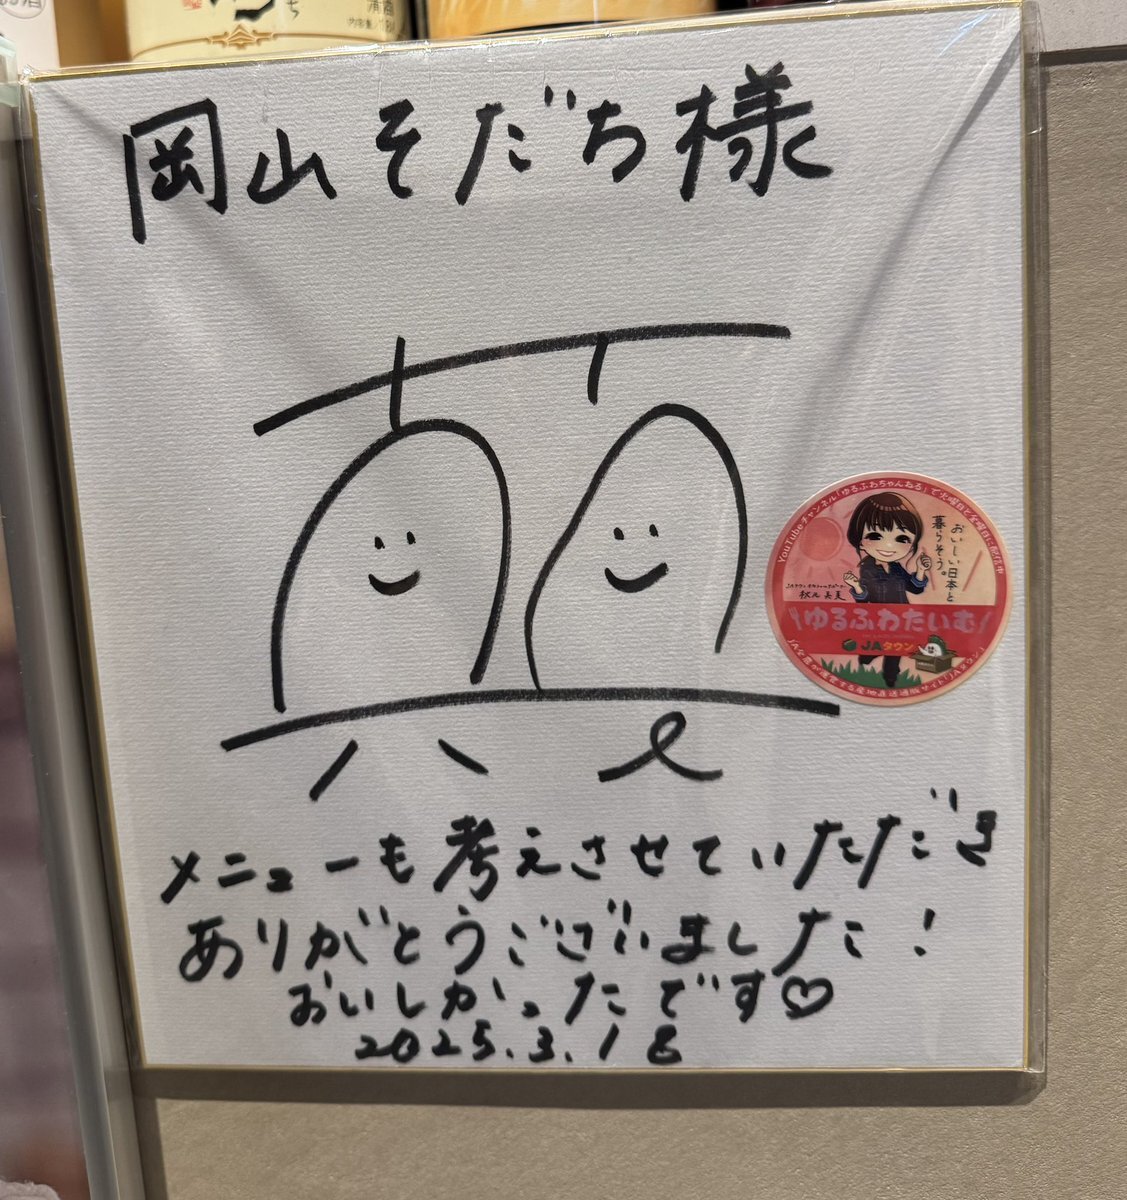 内容量/1.8
岡山そだち様
YouTubeチャンネル「ゆるふわちゃんねる」で火曜日と金曜日に配信中
おいしい日本と
暮らそう。
ゆるふわたいむ
JAタウン
JA全農が運営する産地直送通販サイト「JAタウン」
メニューも考えさせていただき
ありがとうございました!
おいしかったです♡
2025.3.18